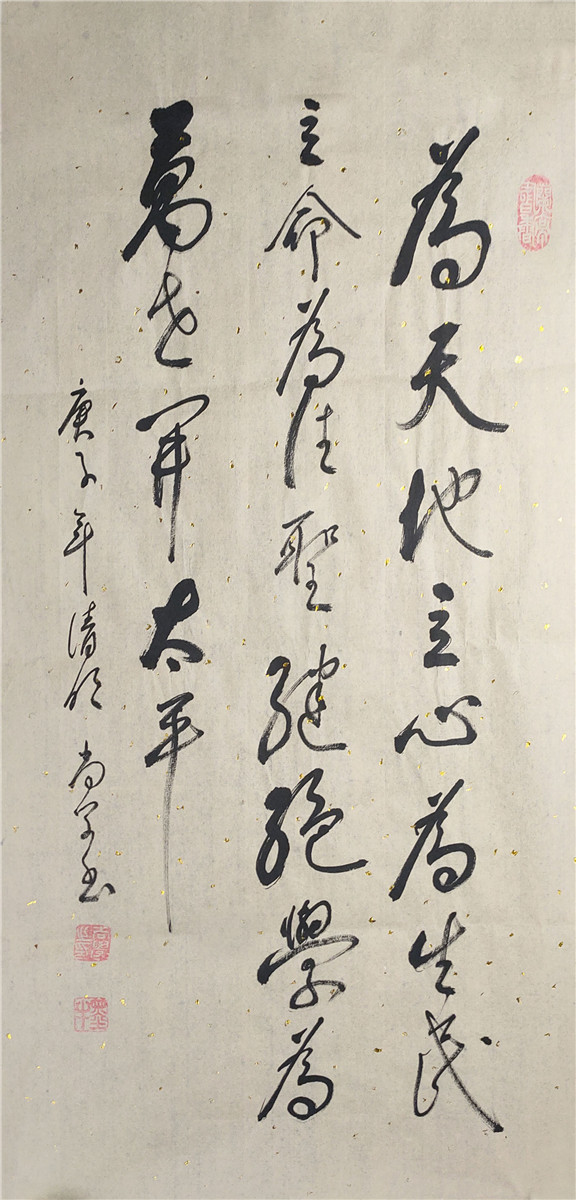 為天地立心為生民
立命為往聖繼絕學為
萬世開太平
庚子年清明 尚學書